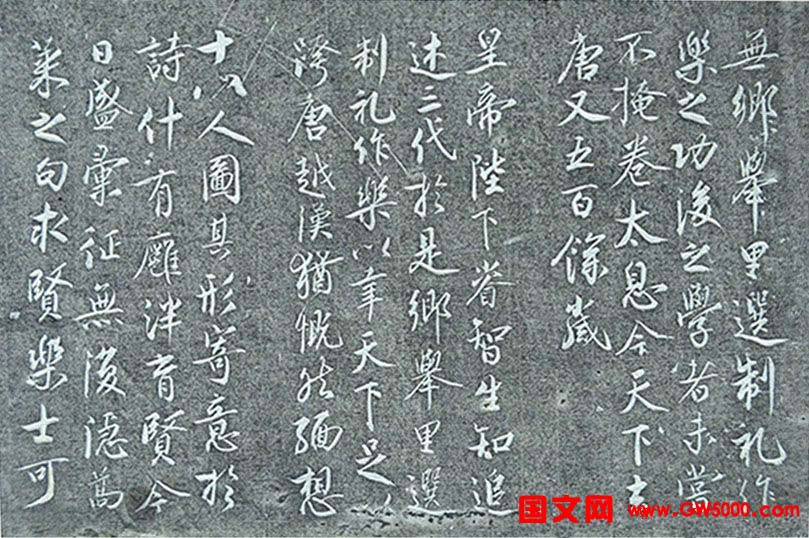 無鄉舉里選制礼作
樂之功後之學者未嘗
不掩卷太息今天下去
唐又五百餘歲
皇帝陛下睿智生知追
述三代於是鄉舉里選
制礼作樂以幸天下足以
跨唐越漢猶慨然緬想
十八人圖其形寄意於
詩什有廱泮育賢今
日盛彙征無復隱蒿
萊之句求賢樂士可
国文网 www.GW5000.com